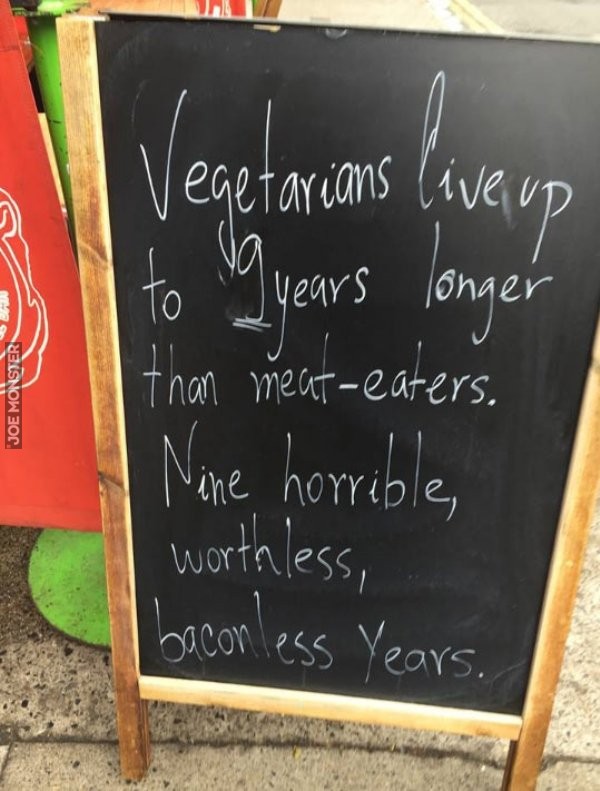 Vegetarians live up
to 9 years longer
than meat-eaters.
Nine horrible,
worthless,
baconless Years.
JOE MONSTER